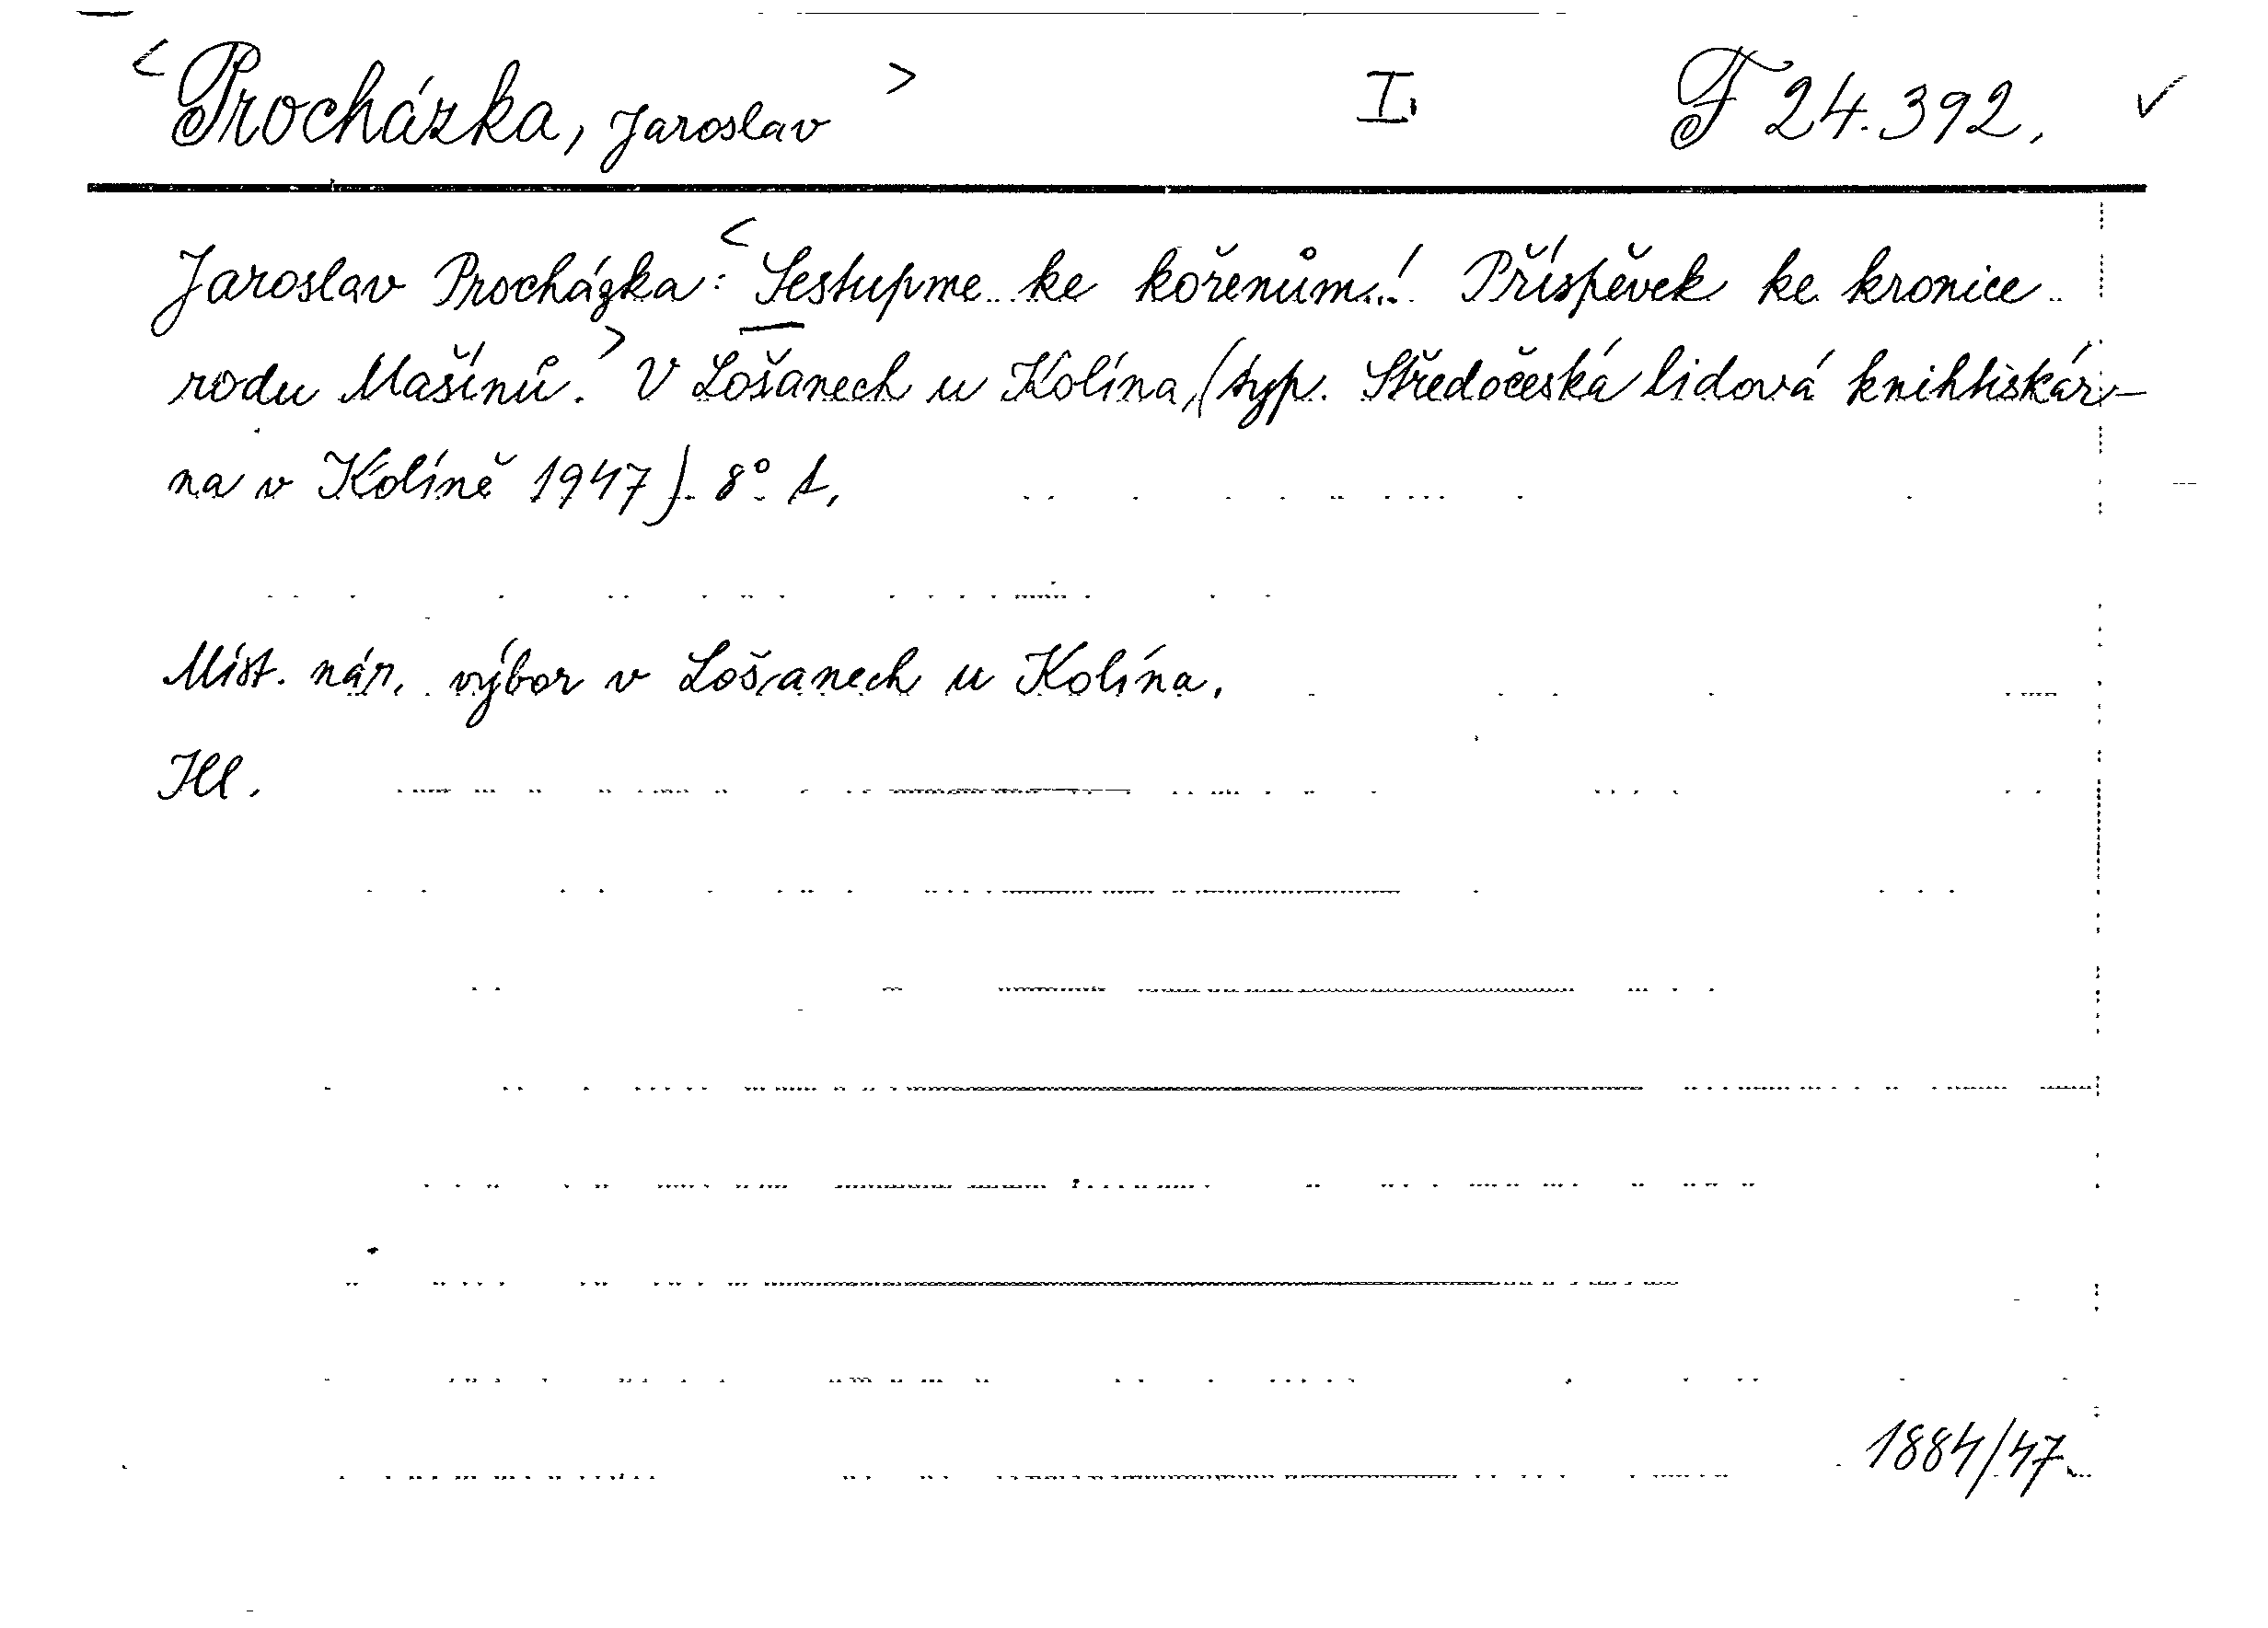 <Procházka, Jaroslav> I. F 24.392. ✓
Jaroslav Procházka: <Sestupme ke kořenům..! Příspěvek ke kronice
rodu Mašínů.> V Lošanech u Kolína, (typ. Středočeská lidová knihtiskár-
na v Kolíně 1947). 8° 1,
Míst. nár. výbor v Lošanech u Kolína.
Ill.
1884/47.